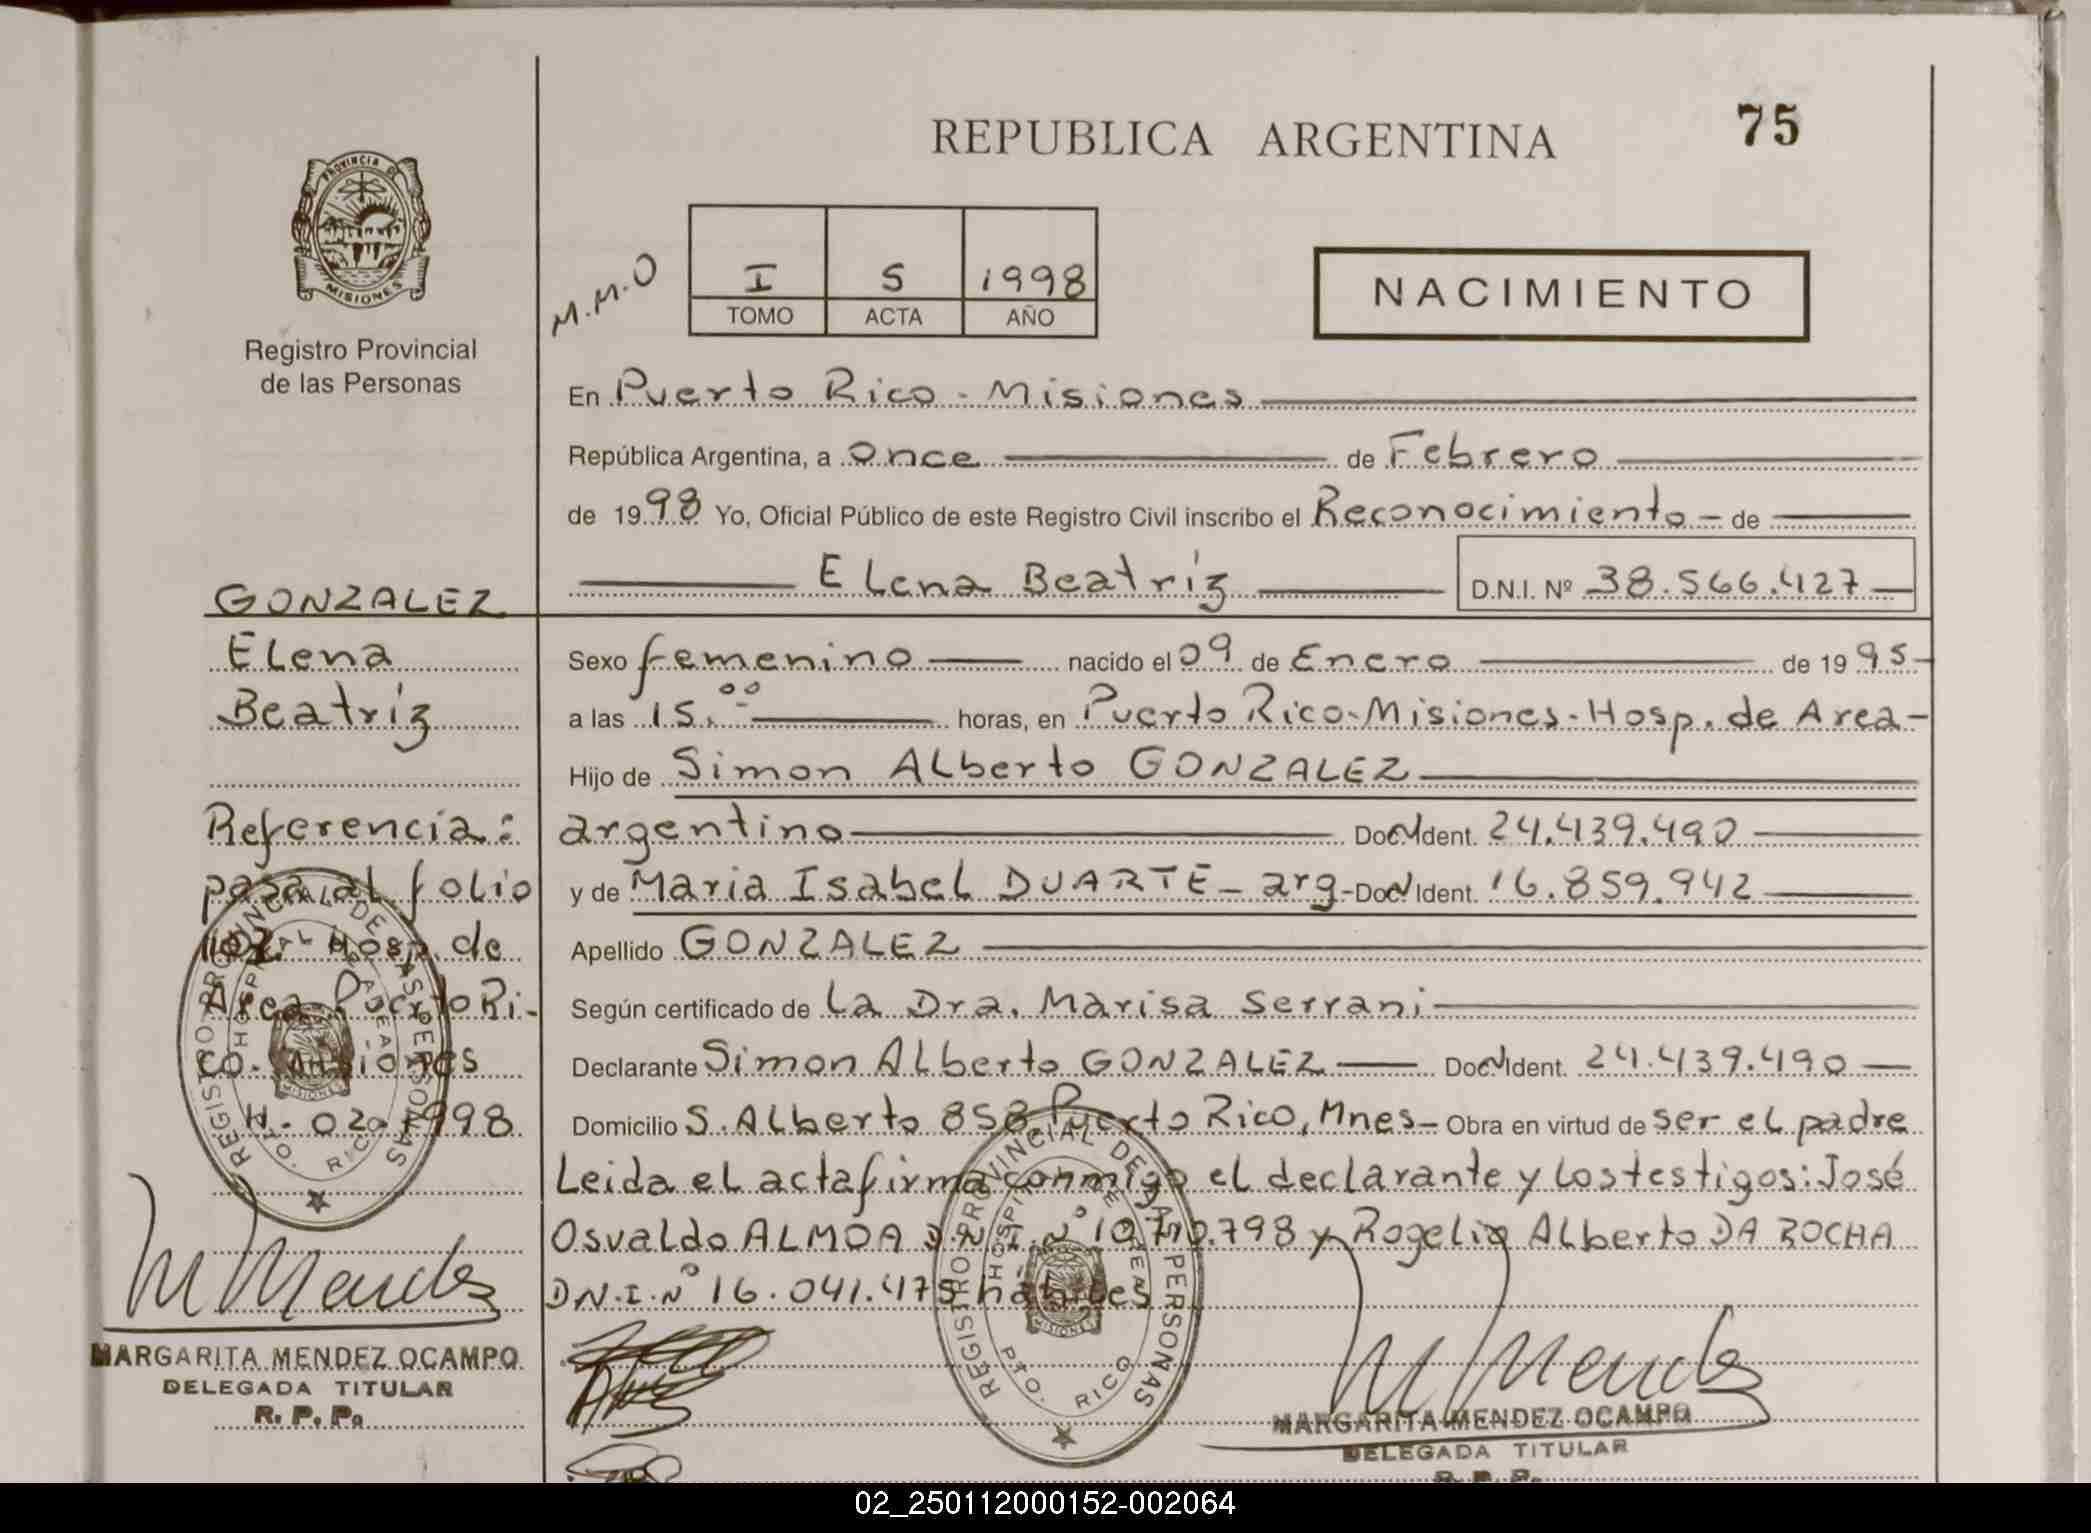 75
REPUBLICA ARGENTINA
PROVINCIA DE
MISIONES
Registro Provincial
de las Personas
M.M.O
I 5 1998
TOMO ACTA AÑO
NACIMIENTO
En Puerto Rico - Misiones
República Argentina, a Once de Febrero
de 1998 Yo, Oficial Público de este Registro Civil inscribo el Reconocimiento - de
Elena Beatríz D.N.I. Nº 38.566.427
Sexo femenino nacido el 09 de Enero de 1995
a las 15,00 horas, en Puerto Rico-Misiones-Hosp. de Area-
Hijo de Simon Alberto GONZALEZ
argentino Doc N Ident. 24.439.490
y de Maria Isabel DUARTE - arg- Doc N Ident. 16.859.942
Apellido GONZALEZ
Según certificado de La Dra. Marisa Serrani
Declarante Simon Alberto GONZALEZ Doc N Ident. 24.439.490
Domicilio S. Alberto 858 Puerto Rico, Mnes- Obra en virtud de ser el padre
Leida el acta firma conmigo el declarante y los testigos: José
Osvaldo ALMOA D.N.I. Nº 10.710.798 y Rogelio Alberto DA ROCHA
D.N.I. Nº 16.041.475 hábiles
GONZALEZ
Elena
Beatríz
Referencia:
pasa al folio
102. Hosp. de
Area Puerto Ri-
co. Misiones
11. 02. 1998
REGISTRO PROVINCIAL DE LAS PERSONAS
HOSPITAL DE AREA
PTO. RICO
MISIONES
M Mendez
MARGARITA MENDEZ OCAMPO
DELEGADA TITULAR
R. P. P.
REGISTRO PROVINCIAL DE LAS PERSONAS
HOSPITAL DE AREA
PTO. RICO
MISIONES
M Mendez
MARGARITA MENDEZ OCAMPO
DELEGADA TITULAR
R. P. P.
02_250112000152-002064